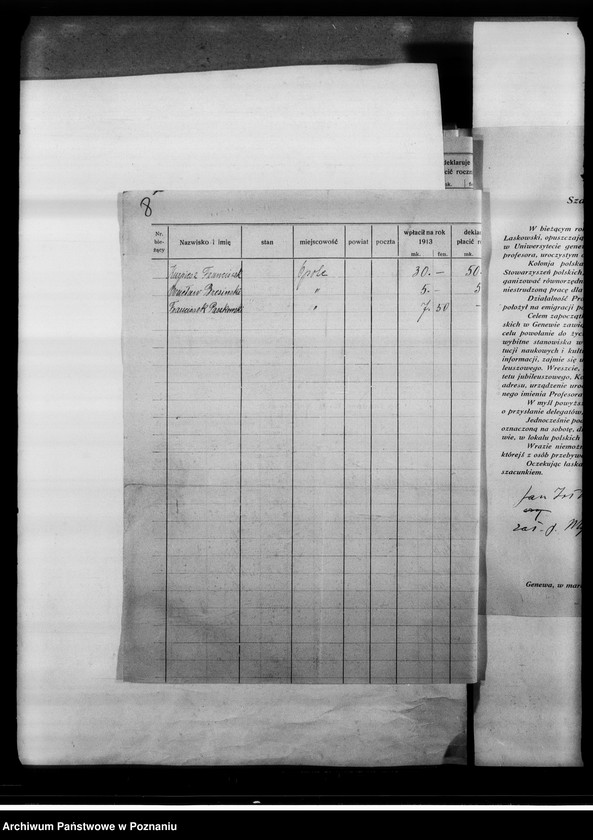 deklaruje
cić roczn
mk.
8
Nr. bie- żący
Nazwisko i imię
stan
miejscowość
powiat
poczta
wpłacił na rok 1913
mk. fen.
dekla
płacić r
mk.
Franciszek Opole 30. — 50
" 5. — 5
Franciszek " 7. 50 -
Sza
W bieżącym ro
Laskowski, opuszczają
w Uniwersytecie gene
profesora, uroczystym o
Kolonja polska
Stowarzyszeń polskich,
ganizować równorzędn
niestrudzoną pracę dla
Działalność Pro
położył na emigracji po
Celem zapocząt
skich w Genewie zawią
celu powołanie do życ
wybitne stanowiska w
tucji naukowych i kultu
informacji, zajmie się u
leuszowego. Wreszcie,
tetu jubileuszowego, Ko
adresu, urządzenie uroc
nego imienia Profesora
W myśl powyżs
o przysłanie delegatów,
Jednocześnie poz
oznaczoną na sobotę, d
wie, w lokalu polskich
Wrazie niemożn
którejś z osób przebyw
Oczekując łaska
szacunkiem.
Jan
Genewa, w mar
Archiwum Państwowe w Poznaniu